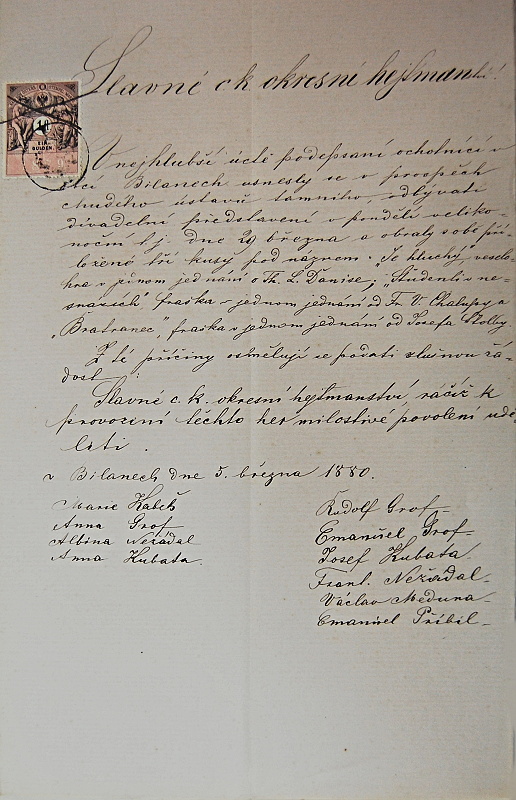 Slavné ck okresní hejtmanství!
EIN
GULDEN
V nejhlubší úctě podepsaní ochotníci v
obci Bilanech usnesly se v prospěch
chudého ústavů tamního, odbývati
divadelní představení v pondělí veliko-
noční t. j. dne 29 března a obraly sobě při
ložené tři kusy pod názvem: „Je hluchý", veselo-
hra v jednom jednání o Th. L. Danise; „Studenti v ne-
snázích", fraška v jednom jednání od Fr. V. Chalupy a
„Bratranec", fraška v jednom jednání od Josefa Štolby.
Z té příčiny osmělují se podati slušnou žá-
dost:
Slavné c. k. okresní hejtmanství, račiž k
provození těchto her milostivé povolení udě-
liti.
v Bilanech dne 5. března 1880.
Marie Kubeš
Anna Grof
Albina Nežádal
Anna Kubata.
Rudolf Grof
Emanuel Grof
Josef Kubata
Frant. Nežádal
Václav Meduna
Emanuel Přibil